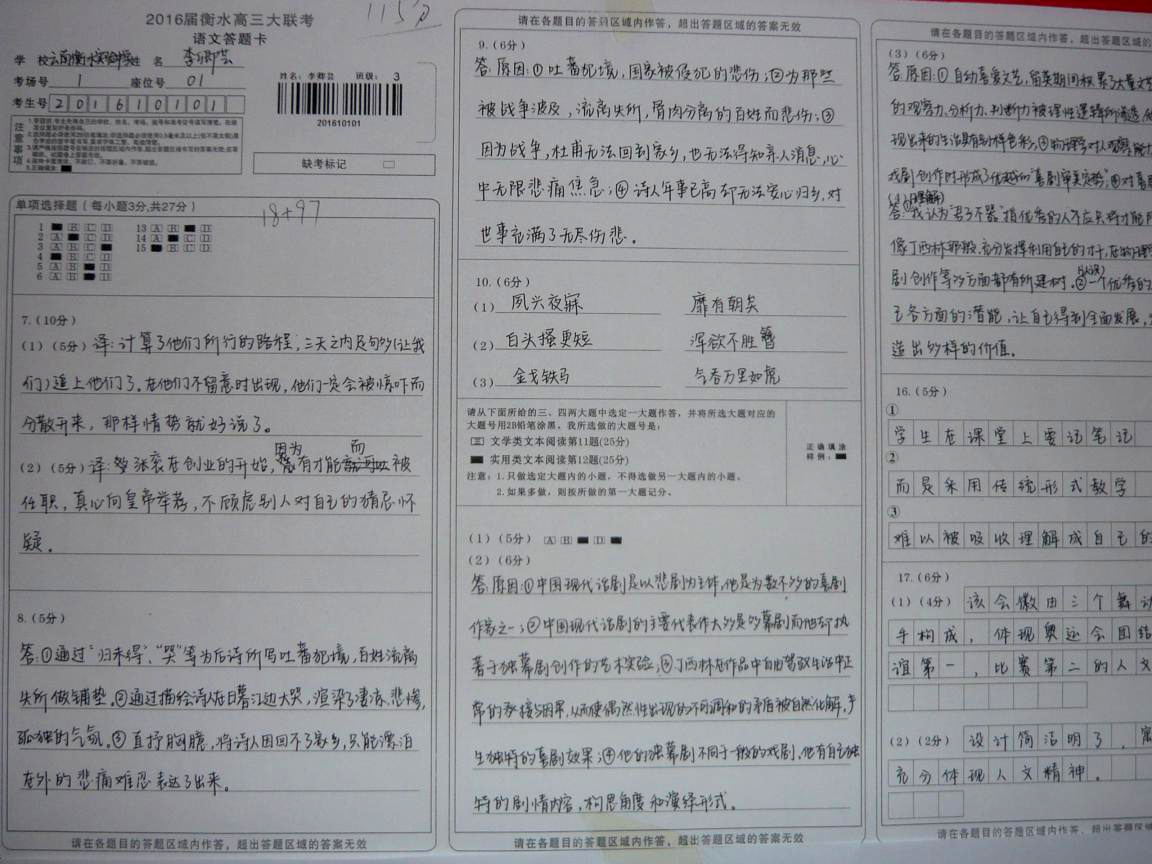 2016届衡水高三大联考
115分
语文答题卡
学 校 云南衡水实验学校 姓 名 李卿芸
考场号 1 座位号 01
考生号 2 0 1 6 1 0 1 0 1
姓名：李卿芸 班级： 3
201610101
注意事项
缺考标记
单项选择题（每小题3分,共27分）
18+97
1 B C D 13 A B D
2 A C D 14 A C D
3 A B C 15 B C D
4 B C D
5 A B D
6 A B D
7.(10分)
(1)(5分) 译:计算了他们所行的路程,三天之内足够(让我
们)追上他们了。在他们不留意时出现,他们一定会被惊吓而
分散开来,那样情势就好说了。
因为 而
(2)(5分) 译:张衮在创业的开始,有才能被
任职,真心向皇帝举荐,不顾虑别人对自己的猜忌怀
疑。
8.(5分)
答:①通过“归未得”、“哭”等为后诗所写吐蕃犯境,百姓流离
失所做铺垫。②通过描绘诗人在日暮江边大哭,渲染了凄凉、悲惨,
孤独的气氛。③直抒胸臆,将诗人因回不了家乡,只能漂泊
在外的悲痛难忍表达了出来。
请在各题目的答题区域内作答，超出答题区域的答案无效
请在各题目的答题区域内作答，超出答题区域的答案无效
9.(6分)
答:原因:①吐蕃犯境,国家被侵犯的悲伤;②为那些
被战争波及,流离失所,骨肉分离的百姓而悲伤;③
因为战争,杜甫无法回到家乡,也无法得知亲人消息,心
中无限悲痛焦急;④诗人年事已高却无法安心归乡,对
世事充满了无尽伤悲。
10.(6分)
(1) 夙兴夜寐 靡有朝矣
(2) 白头搔更短 浑欲不胜簪
(3) 金戈铁马 气吞万里如虎
请从下面所给的三、四两大题中选定一大题作答，并将所选大题对应的
大题号用2B铅笔涂黑。我所选做的大题号是:
三 文学类文本阅读第11题(25分)
实用类文本阅读第12题(25分)
注意：1.只做选定大题内的小题，不得选做另一大题内的小题。
2.如果多做，则按所做的第一大题记分。
正确填涂
样例：
(1)(5分) A B D
(2)(6分)
答:原因:①中国现代话剧是以悲剧为主体,他是为数不多的喜剧
作家之一;②中国现代话剧的主要代表作大多是多幕剧而他却执
着于独幕剧创作的艺术实验;③丁西林在作品中自如驾驭生活中正
常的承接与因果,从而使偶然性出现的不可调和的矛盾被自然化解,产
生独特的喜剧效果;④他的独幕剧不同于一般的戏剧,他有自己独
特的剧情内容,构思角度和演绎形式。
请在各题目的答题区域内作答，超出答题区域的答案无效
请在各题目的答题区域内作答，超出答题区域的
(3)(6分)
答:原因:①自幼喜爱文艺,留英期间积累了大量文艺
的观察力、分析力、判断力被理性逻辑所
现出来的生活具有别样色彩。③物理学对人观察
戏剧创作时形成了“喜剧审美定势”;④对喜剧
答:我认为“君子不器”指优秀的人不应只将才能
像丁西林那般,充分发挥利用自己的才干,在物理
剧创作等多方面都有所建树。②一个优秀的
己各方面的潜能,让自己得到全面发展,
造出多样的价值。
16.(5分)
①
学生在课堂上要记笔记
②
而是采用传统形式教学
③
难以被吸收理解成自己的
17.(6分)
(1)(4分) 该会徽由三个舞动
手构成，体现奥运会团结
谊第一，比赛第二的人文
(2)(2分) 设计简洁明了，寓
充分体现人文精神。
请在各题目的答题区域内作答，超出答题区域